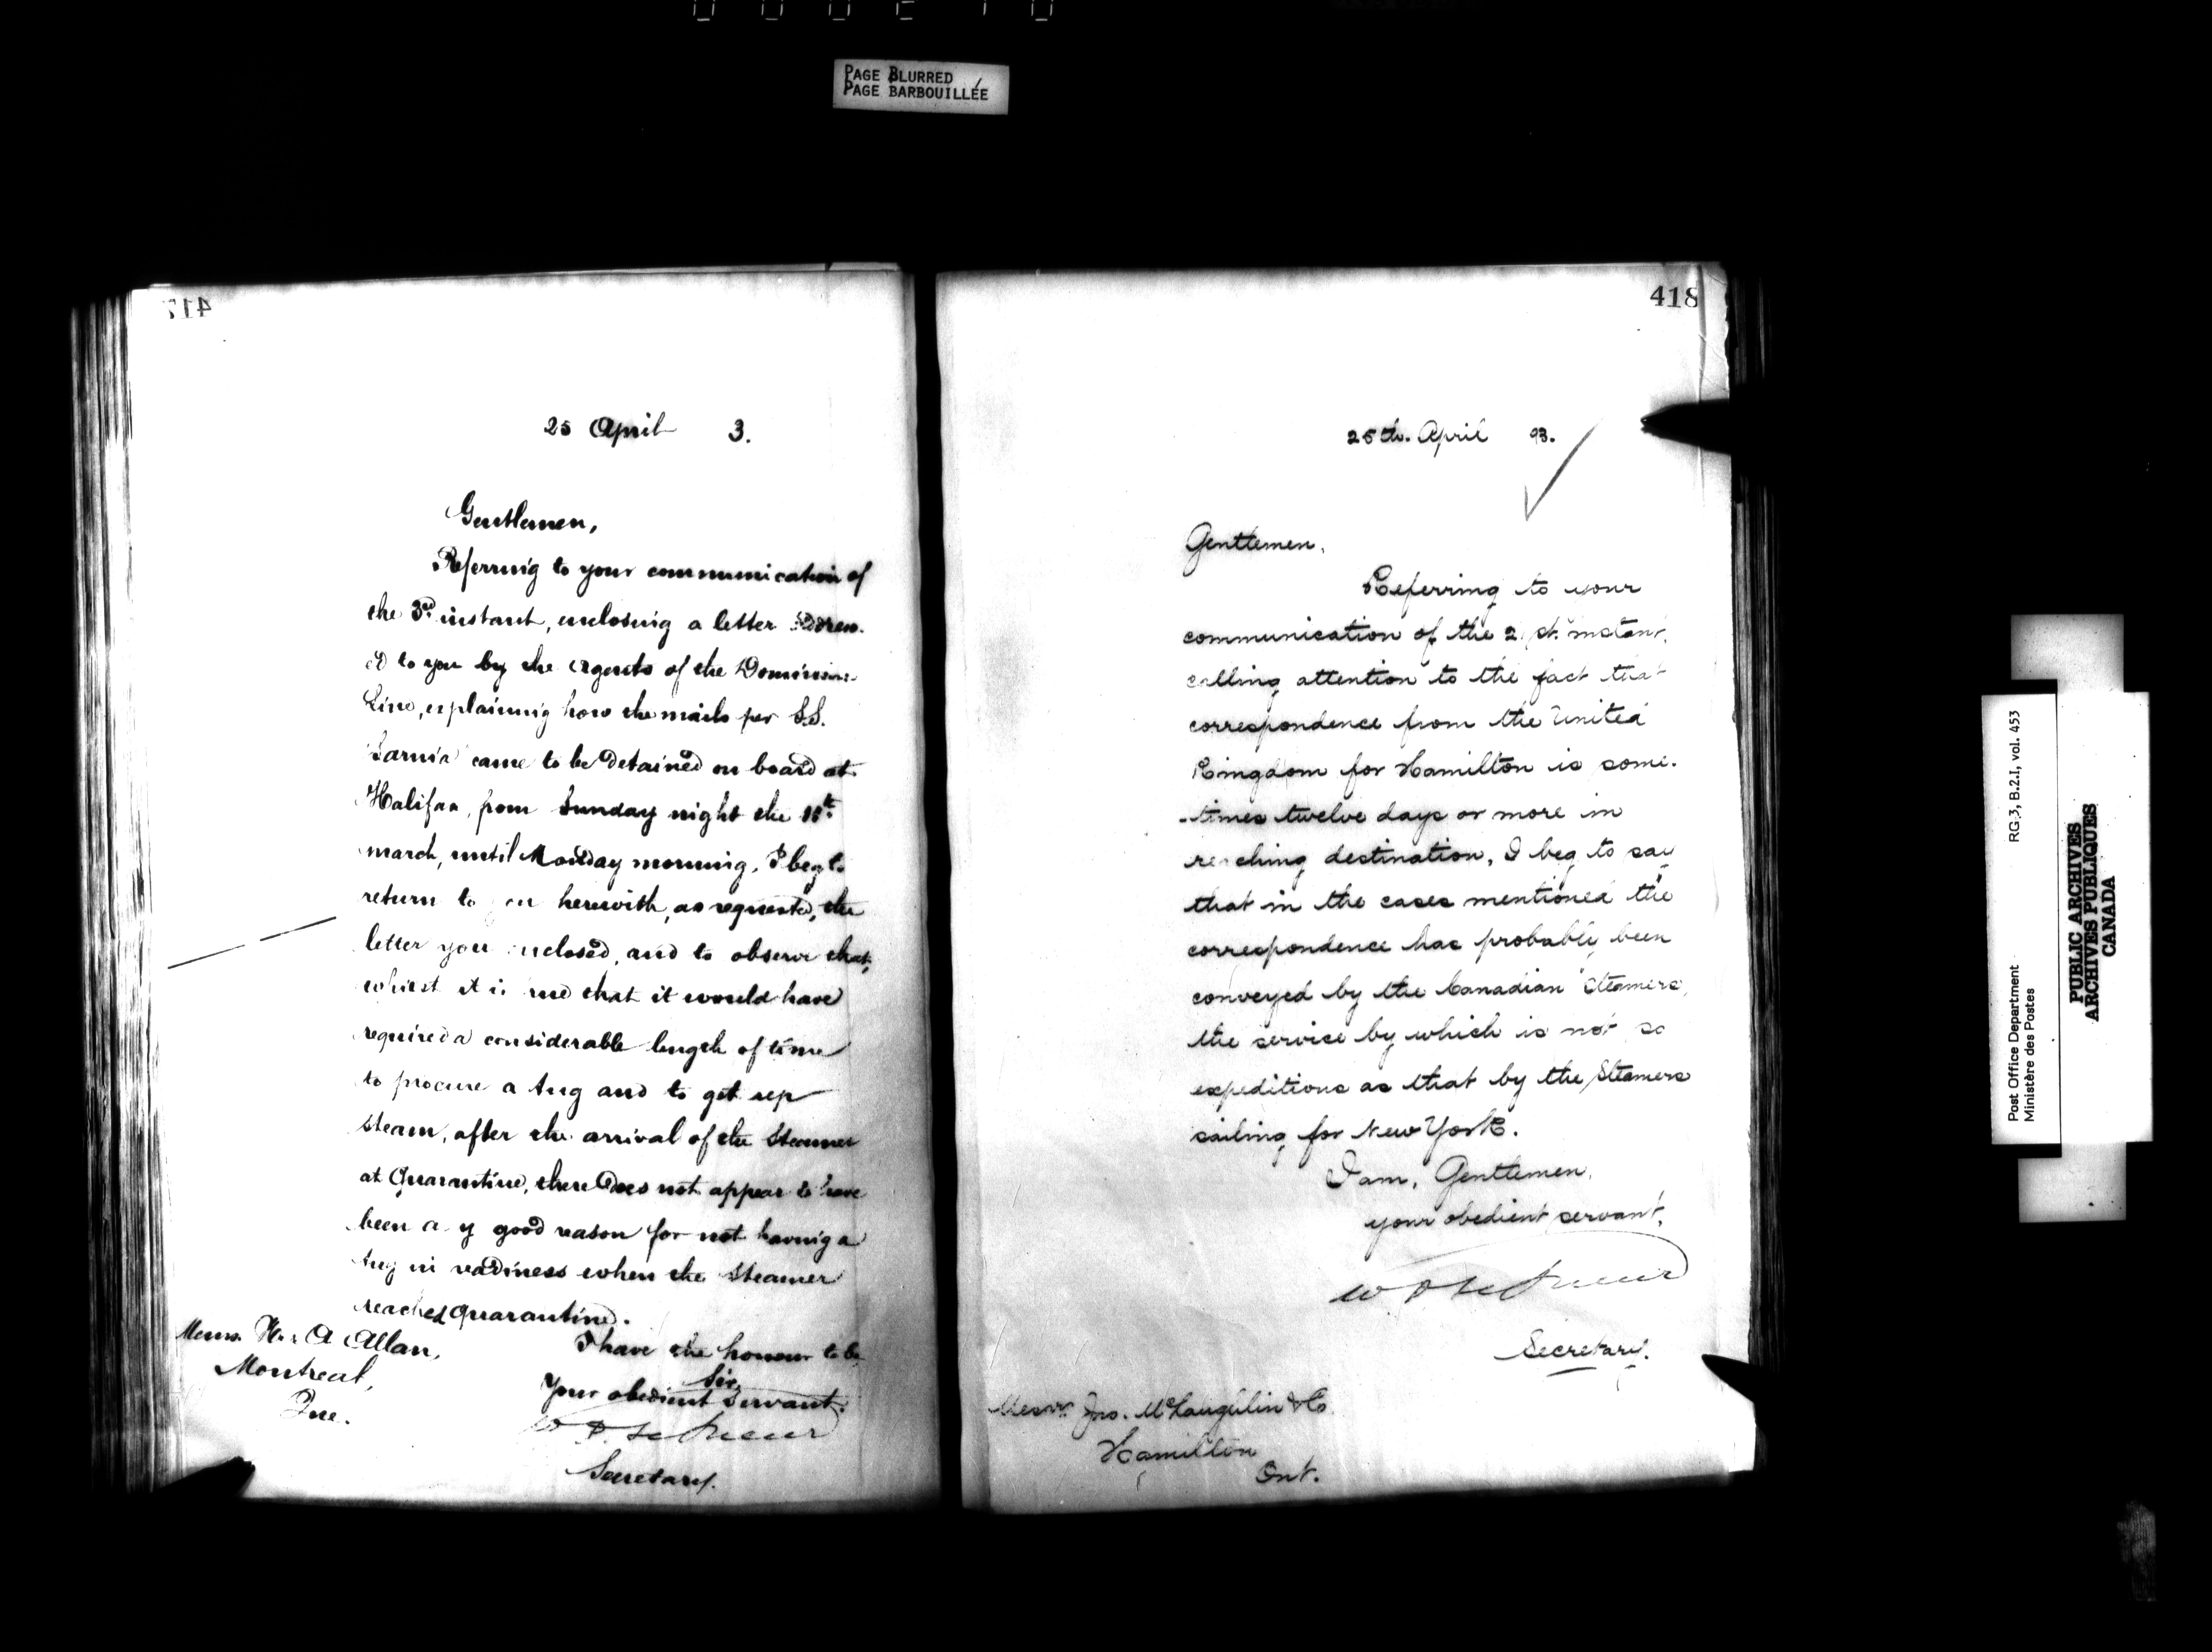 PAGE BLURRED
PAGE BARBOUILLÉE
417
25 April 3.
Gentlemen,
Referring to your communication of
the 3rd instant, enclosing a letter address-
ed to you by the Agents of the Dominion
Line, explaining how the mails per S.S.
"Sarnia" came to be detained on board at
Halifax, from Sunday night the
march, until Monday morning, I beg to
return to you herewith, as requested, the
letter you enclosed, and to observe that,
whilst it is true that it would have
required a considerable length of time
to procure a tug and to get up
steam, after the arrival of the Steamer
at Quarantine, there does not appear to have
been any good reason for not having a
tug in readiness when the Steamer
reached Quarantine.
I have the honour to be,
Sir,
Your obedient Servant.
Secretary.
Messrs. H. & A Allan,
Montreal,
Que.
418
25th. April 93.
Gentlemen,
Referring to your
communication of the 21st. instant,
calling attention to the fact that
correspondence from the United
Kingdom for Hamilton is some-
-times twelve days or more in
reaching destination, I beg to say
that in the cases mentioned the
correspondence has probably been
conveyed by the Canadian Steamers,
the service by which is not so
expeditious as that by the Steamers
sailing for New York.
I am, Gentlemen,
your obedient servant,
Secretary.
Messrs. Jno. McLaughlin & Co
Hamilton
Ont.
Post Office Department RG.3, B.2.I, vol. 453
Ministère des Postes
PUBLIC ARCHIVES
ARCHIVES PUBLIQUES
CANADA